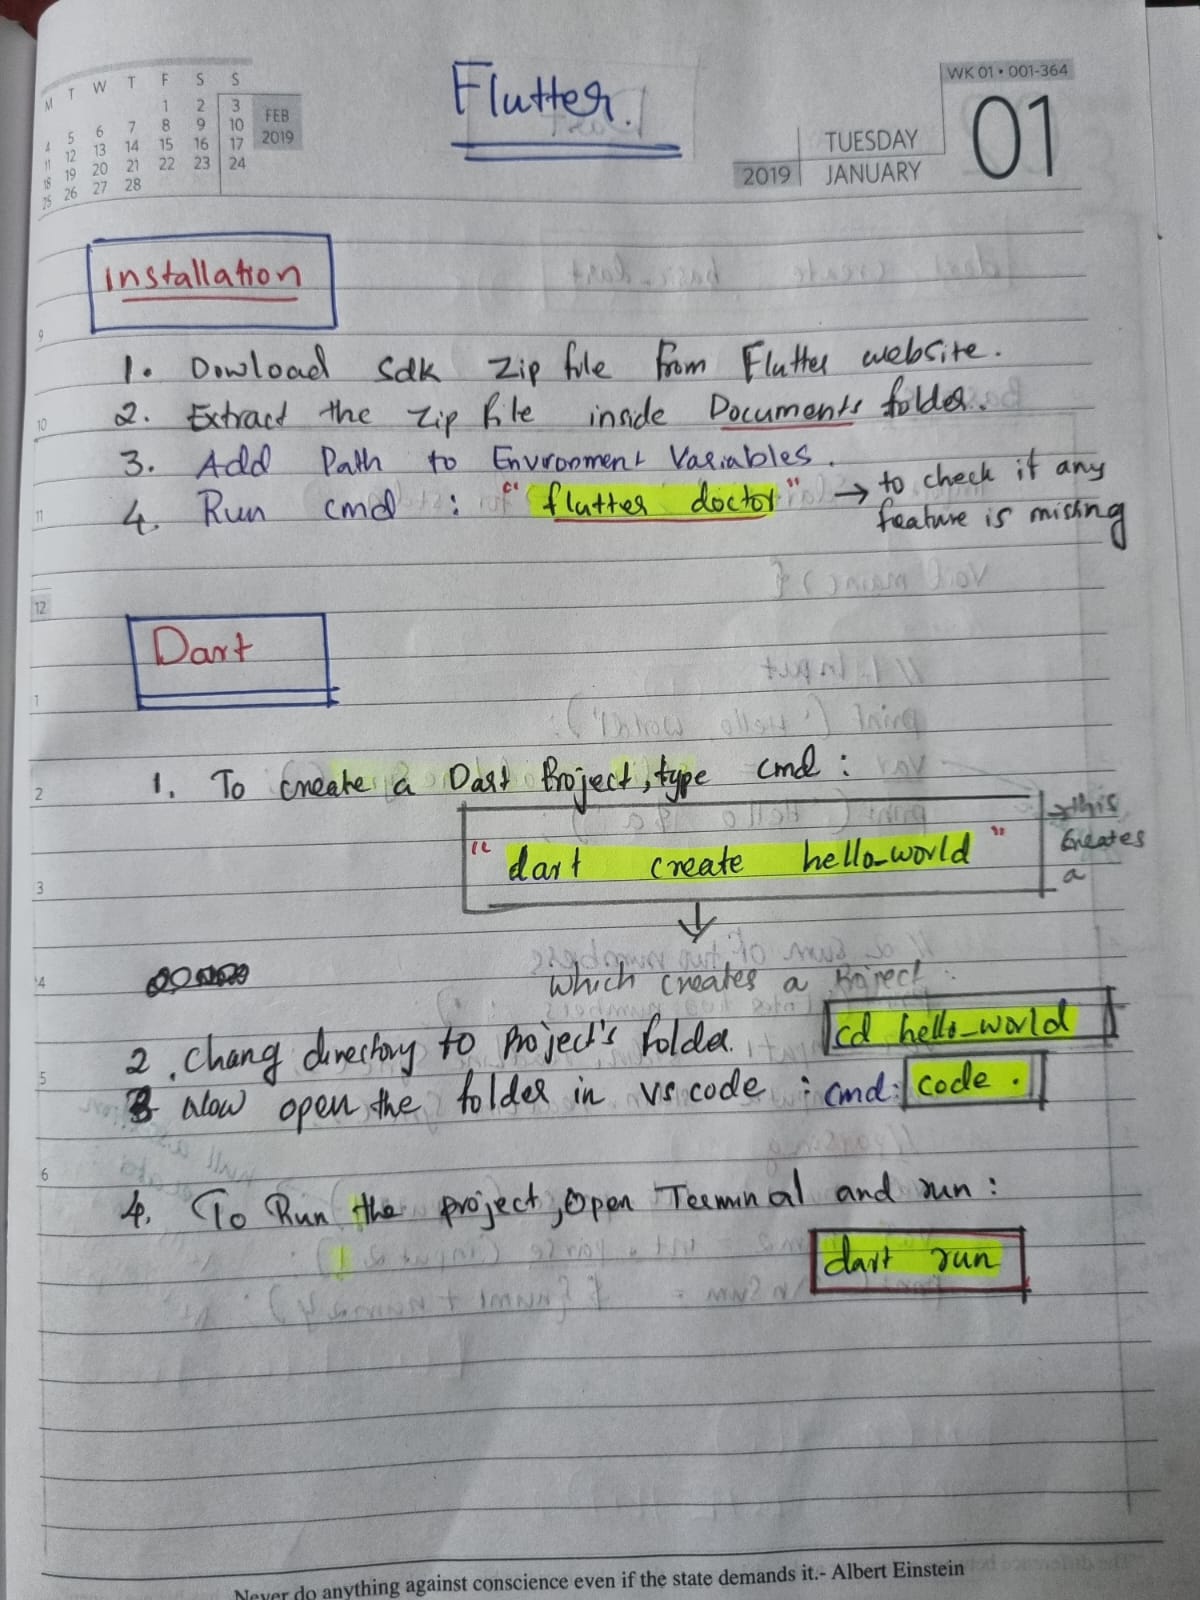 M T W T F S S
1 2 3
4 5 6 7 8 9 10
11 12 13 14 15 16 17
18 19 20 21 22 23 24
25 26 27 28
FEB
2019
Flutter.
WK 01 • 001-364
01
TUESDAY
2019 JANUARY
Installation
9
1. Dowload Sdk Zip file from Flutter website.
10
2. Extract the Zip file inside Documents folder.
3. Add Path to Environment Variables.
11
4. Run cmd : "flutter doctor" → to check if any
feature is missing
12
Dart
1
2
1. To create a Dart Project, type cmd :
"dart create hello_world" → this
creates
a
3
↓
4
which creates a Project
2. Chang directory to Project's folder. cd hello_world
5
3 Now open the folder in vs code : cmd: code .
6
4. To Run the project, Open Terminal and run :
dart run
Never do anything against conscience even if the state demands it.- Albert Einstein